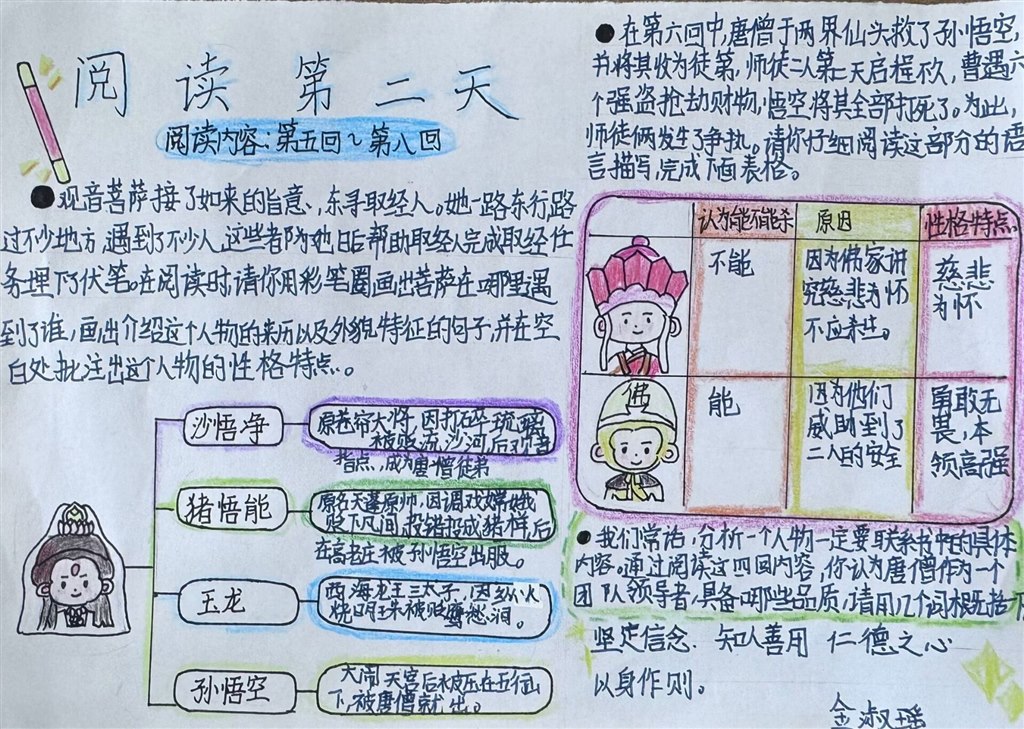 阅读第二天
阅读内容:第五回~第八回
●观音菩萨接了如来的旨意,东寻取经人。她一路东行路
过不少地方,遇到了不少人,这些都为她日后帮助取经人完成取经任
务埋下了伏笔。在阅读时,请你用彩笔圈画出菩萨在哪里遇
到了谁,画出介绍这个人物的来历以及外貌特征的句子,并在空
白处批注出这个人物的性格特点。
沙悟净
原卷帘大将,因打碎琉璃
被贬流沙河,后
指点,成为唐僧徒弟
猪悟能
原名天蓬原帅,因调戏嫦娥
贬下凡间,投错投成猪样,后
在高老庄被孙悟空出服。
玉龙
西海龙王三太子,因纵火
烧明珠被贬鹰愁涧。
孙悟空
大闹天宫后被压在五行山
下,被唐僧就出。
●在第六回中,唐僧于两界仙头救了孙悟空,
并将其收为徒第,师徒二人第二天启程不久,曹遇六
个强盗抢劫财物,悟空将其全部打死了。为此,
师徒俩发生了争执。请你仔细阅读这部分的语
言描写,完成下面表格。
认为能不能杀 原因 性格特点
不能 因为佛家讲 慈悲
究慈悲为怀 为怀
不应杀生。
佛
能 因为他们 勇敢无
威胁到了 畏,本
二人的安全 领高强
●我们常说,分析一个人物一定要联系书中的具体
内容。通过阅读这四回内容,你认为唐僧作为一个
团队领导者,具备哪些品质,请用几个词概括下
坚定信念. 知人善用 仁德之心
以身作则。
金淑瑶